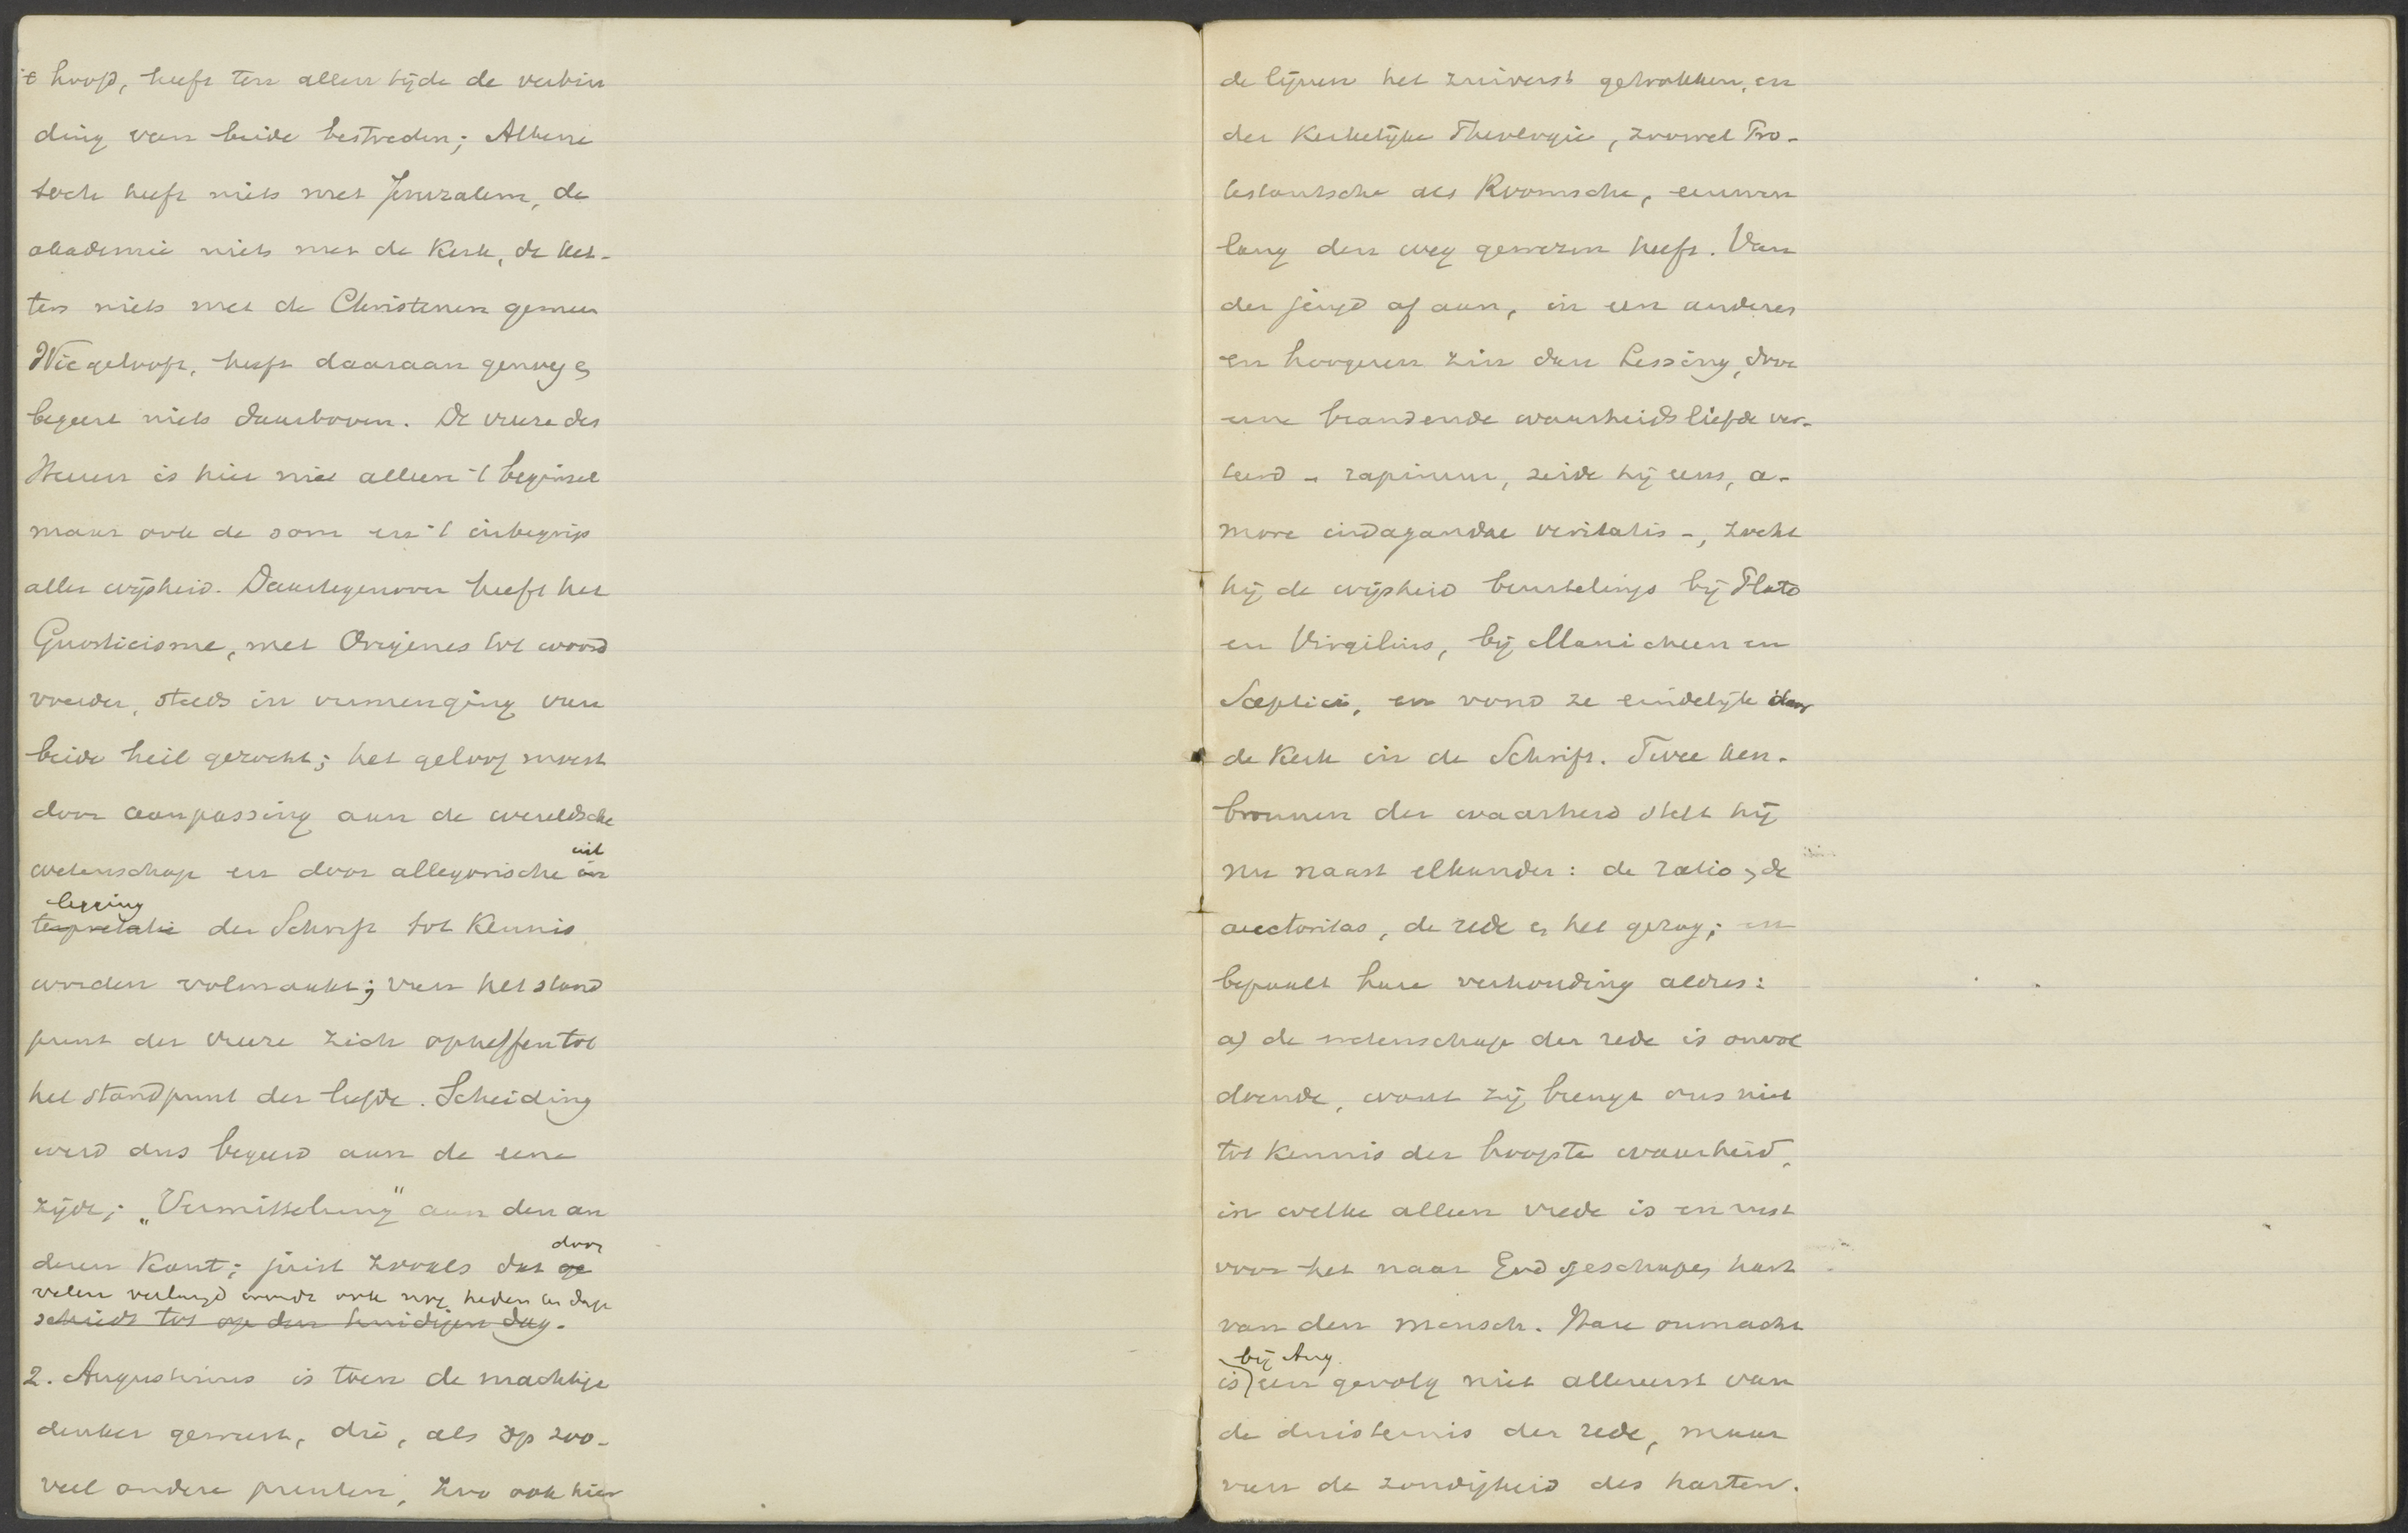 't hoofd, heeft ten allen tijde de verbin
ding van beide bestreden; Athene
toch heeft niets met Jeruzalem, de
akademie niets met de Kerk, de ket-
ters niets met de Christenen gemeen
Wie gelooft, heeft daaraan genoeg &
begeert niets daarboven. De vreeze des
Heeren is hier niet alleen 't beginsel
maar ook de som en 't inbegrip
aller wijsheid. Daartegenover heeft het
Gnosticisme, met Origenes tot woord
voerder, steeds in vermenging van
beide heil gezocht; het geloof moest
door aanpassing aan de wereldsche
uit
wetenschap en door allegorische in
legging
terpretatie der Schrift tot Kennis
worden volmaakt; van het stand
punt der vreeze zich opheffen tot
het standpunt der liefde. Scheiding
werd dus begeerd aan de eene
zijde; „Vermittelung" aan den an
door
deren Kant; juist zooals dat ge
velen verlangd wordt ook nog heden ten dage
schiedt tot op den huidigen dag.
2. Augustinus is toen de machtige
denker geweest, die, als op zoo-
veel andere punten, zoo ook hier
de lijnen het zuiverst getrokken, en
der Kerkelijke Theologie, zoowel Pro-
testantsche als Roomsche, eeuwen
lang den weg gewezen heeft. Van
der jeugd af aan, in een anderen
en hoogeren zin dan Lessing, door
eene brandende waarheidsliefde ver-
teerd - rapimur, zeide hij eens, a-
more indagandae veritatis -, zocht
hij de wijsheid beurtelings bij Plato
en Virgilius, bij Manicheen en
Sceptici, en vond ze eindelijk door
de Kerk in de Schrift. Twee ken-
bronnen der waarheid stelt hij
nu naast elkander: de ratio & de
auctoritas, de rede & het gezag; en
bepaalt hare verhouding aldus:
a) de wetenschap der rede is onvol
doende, want zij brengt ons niet
tot Kennis der hoogste waarheid,
in welke alleen vrede is en rust
voor het naar God geschapen hart
van den mensch. Hare onmacht
bij Aug.
is een gevolg niet allereerst van
de duisternis der rede, maar
van de zondigheid des harten.